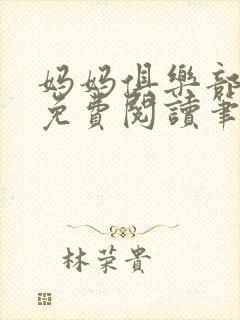 妈妈俱樂部
免費閱讀筆
林荣貴